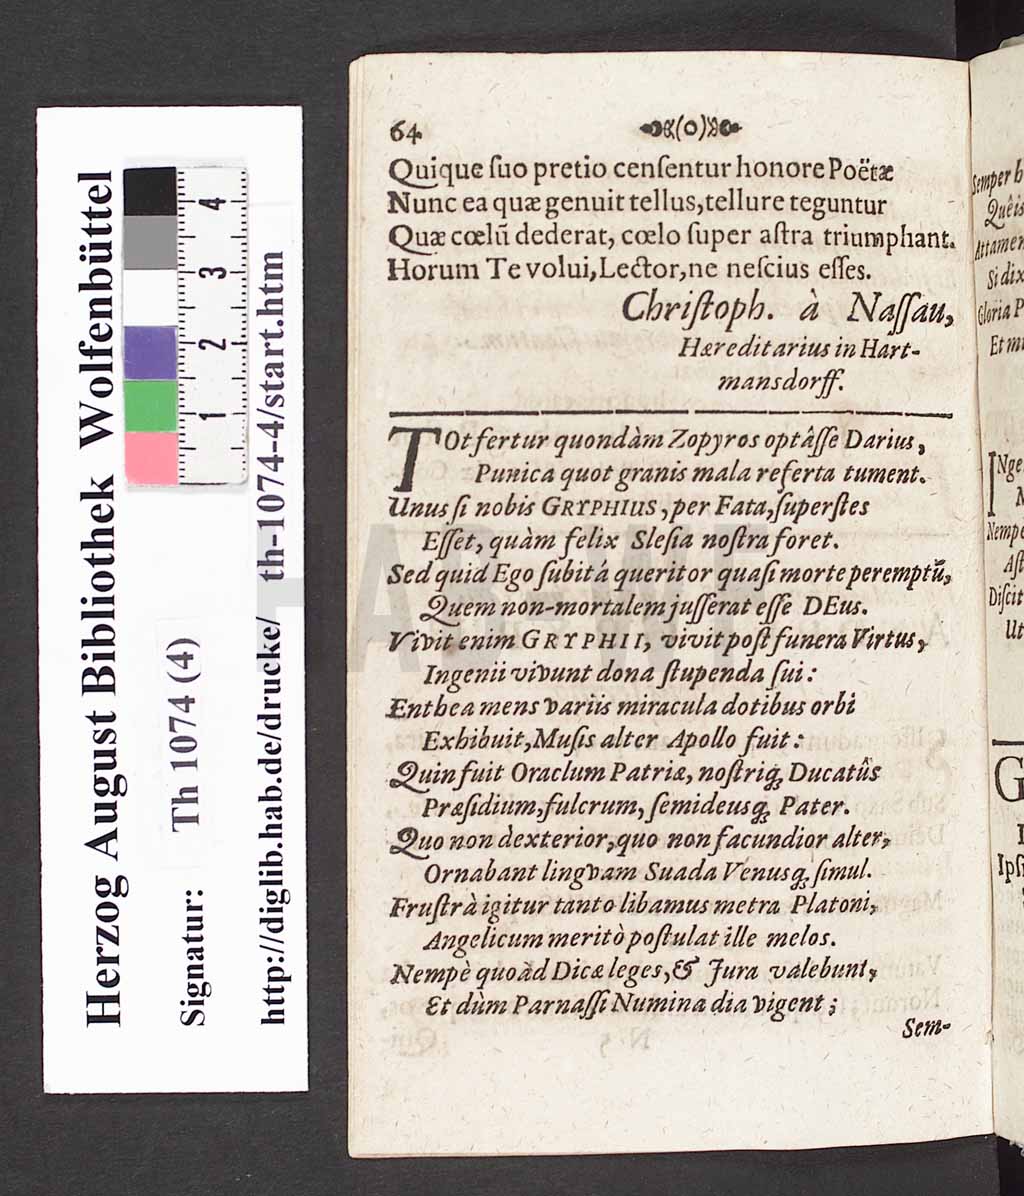 Herzog August Bibliothek Wolfenbüttel
Signatur: Th 1074 (4)
http://diglib.hab.de/drucke/ th-1074-4/start.htm
1 2 3 4
64 (o)
Quique ſuo pretio cenſentur honore Poëtæ
Nunc ea quæ genuit tellus, tellure teguntur
Quæ cœlũ dederat, cœlo ſuper aſtra triumphant.
Horum Te volui, Lector, ne neſcius eſſes.
Chriſtoph. à Naſſau,
Hæreditarius in Hart-
mansdorff.
TOt fertur quondàm Zopyros optâſſe Darius,
Punica quot granis mala referta tument.
Unus ſi nobis GRYPHIUS, per Fata, ſuperſtes
Eſſet, quàm felix Sleſia noſtra foret.
Sed quid Ego ſubitá queritor quaſi morte peremptũ,
Quem non-mortalem juſſerat eſſe DEus.
Vivit enim GRYPHII, vivit poſt funera Virtus,
Ingenii vivunt dona ſtupenda ſui:
Enthea mens variis miracula dotibus orbi
Exhibuit, Muſis alter Apollo fuit:
Quin fuit Oraclum Patriæ, noſtriq́; Ducatûs
Præſidium, fulcrum, ſemideusq́; Pater.
Quo non dexterior, quo non facundior alter,
Ornabant lingvam Suada Venusq́; ſimul.
Fruſtrà igitur tanto libamus metra Platoni,
Angelicum meritò poſtulat ille melos.
Nempè quoàd Dicæ leges, & Jura valebunt,
Et dùm Parnaſſi Numina dia vigent;
Sem-
Semper h
Quêis
Attamen
Si dix
Gloria P
Et mi
INge
Nempe
Aſt
Diſcit
Ut
G
Ipſi